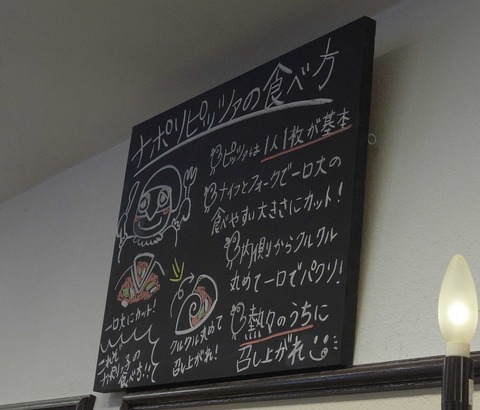 ナポリピッツァの食べ方
ピッツァは1人1枚が基本
ナイフとフォークで一口大の
食べやすい大きさにカット!
内側からクルクル
丸めて一口でパクリ!
熱々のうちに
召し上がれ
一口大にカット!
クルクル丸めて
召し上がれ!
これぞ
ナポリっ子の
食べ方!!